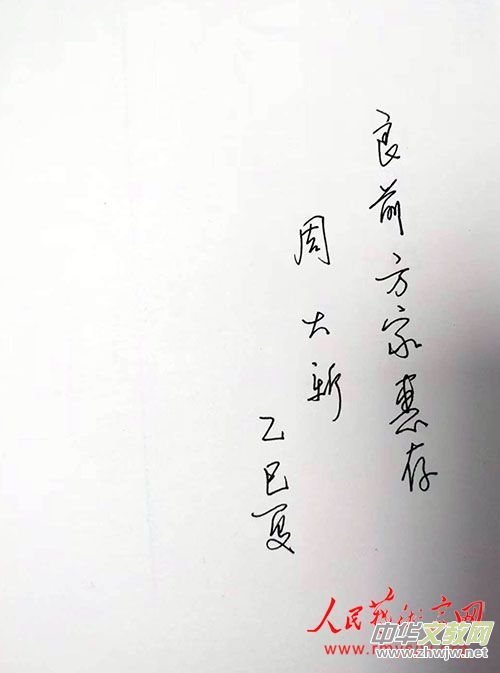 良前方家惠存
周大新
乙巳夏
人民艺术家网
中华文教网
www.zhwjw.net